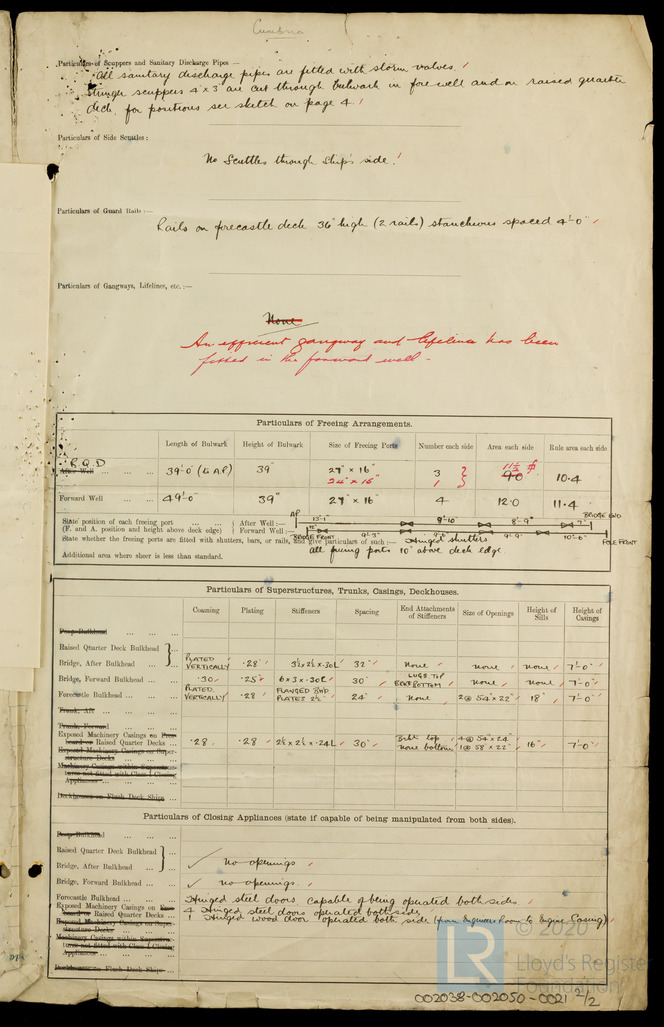 Cumbria
Particulars of Scuppers and Sanitary Discharge Pipes —
All sanitary discharge pipes are fitted with storm valves.
scuppers 4" x 3" are cut through bulwark in fore well and on raised quarter
deck, for positions see sketch on page 4.
Particulars of Side Scuttles:
No Scuttles through Ship's side.
Particulars of Guard Rails:—
Rails on forecastle deck 36" high (2 rails) stanchions spaced 4'-0"
Particulars of Gangways, Lifelines, etc.:—
None
An efficient gangway and lifelines has been
fitted in the forward well.
Particulars of Freeing Arrangements.
Length of Bulwark Height of Bulwark Size of Freeing Ports Number each side Area each side Rule area each side
R.Q.D
After Well ... ... ... 39'-0" (to A.P.) 39" 27" x 16" 3 9.0 10.4
24" x 16" 1 11½
Forward Well ... ... 49'-0" 39" 27" x 16" 4 12.0 11.4
State position of each freeing port ... ... After Well:— AP 13'-1" 9'-10" 8'-9" 7" BRIDGE END
(F. and A. position and height above deck edge) Forward Well:— BRIDGE FRONT 9'-3" 9'-6" 9'-9" 10'-6" FOLE FRONT
State whether the freeing ports are fitted with shutters, bars, or rails, and give particulars of such:— Hinged shutters
all freeing ports 10" above deck edge.
Additional area where sheer is less than standard.
Particulars of Superstructures, Trunks, Casings, Deckhouses.
Coaming Plating Stiffeners Spacing End Attachments of Stiffeners Size of Openings Height of Sills Height of Casings
Poop Bulkhead ... ... ...
Raised Quarter Deck Bulkhead
Bridge, After Bulkhead ... PLATED VERTICALLY .28" 3½ x 2½ x .30L 32" None none none 7'-0"
Bridge, Forward Bulkhead ... .30 .25" 6 x 3 x .30L 30" LUGS TOP BOTTOM None none 7'-0"
Forecastle Bulkhead ... ... PLATED VERTICALLY .28 FLANGED BHD PLATES 2½" 24" none 2 @ 54" x 22" 18" 7'-0"
Trunk, Aft ... ... ...
Trunk, Forward ... ...
Exposed Machinery Casings on Poop
boards or Raised Quarter Decks ... .28 .28 2½ x 2½ x .24L 30" top none bottom 4 @ 54" x 24" 1 @ 58 x 22" 16" 7'-0"
Exposed Machinery Casings on Super-
structure Decks ... ...
Machinery Casings within Superstruc-
tures not fitted with Class 1 Closing
Appliances ... ... ...
Deckhouses on Flush Deck Ships ...
Particulars of Closing Appliances (state if capable of being manipulated from both sides).
Poop Bulkhead ... ... ...
Raised Quarter Deck Bulkhead
Bridge, After Bulkhead ... no openings
Bridge, Forward Bulkhead ... ... no openings.
Forecastle Bulkhead ... ... Hinged steel doors capable of being operated both sides.
Exposed Machinery Casings on
boards or Raised Quarter Decks ... 4 Hinged steel doors operated both sides
1 Hinged wood door operated both side (from Engineers Room to Engine Casing)
Exposed Machinery Casings on Super-
structure Decks ... ...
Machinery Casings within Superstruc-
tures not fitted with Class 1 Closing
Appliances ... ... ...
Deckhouses on Flush Deck Ships ...
© 2020
LR Lloyd's Register
Foundation
002038-002050-0021 2/2